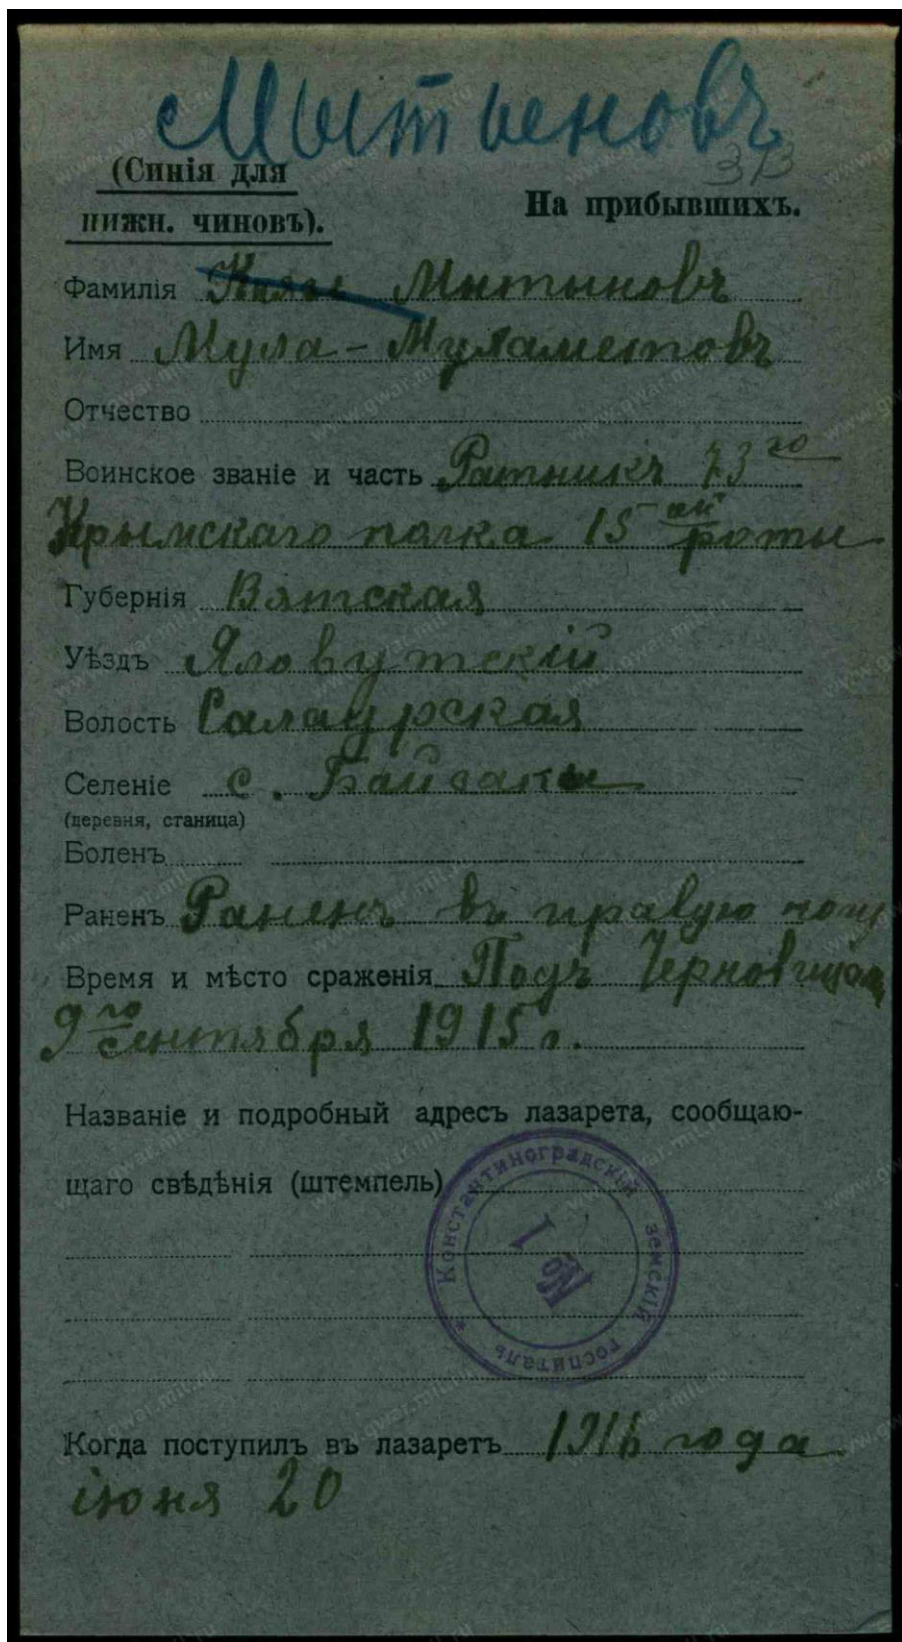 Мытыеновъ
373
(Синія для
нижн. чиновъ).
На прибывшихъ.
Фамилія Мытыновъ
Имя Мула - Мухаметовъ
Отчество
Воинское званіе и часть Ратникъ 73го
Крымскаго полка 15ой роты
Губернія Вятская
Уѣздъ Яловутскій
Волость Салаурская
Селеніе с. Байсакы
(деревня, станица)
Боленъ
Раненъ Раненъ въ правую ногу
Время и мѣсто сраженія Подъ Черновицам
9го сентября 1915 г.
Названіе и подробный адресъ лазарета, сообщаю-
щаго свѣдѣнія (штемпель)
Константиноградскій земскій госпиталь *
№ 1
Когда поступилъ въ лазаретъ 1916 года
іюня 20